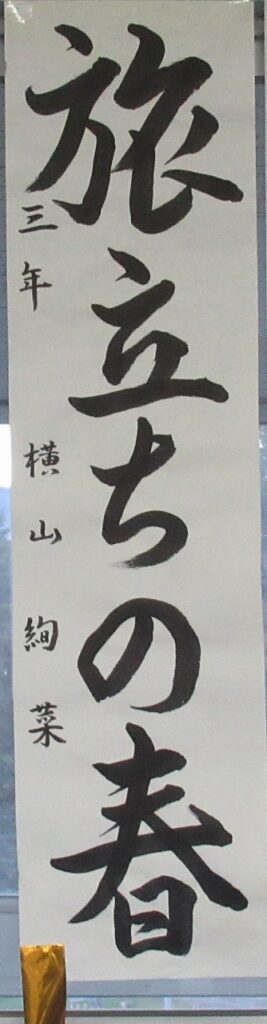 旅立ちの春
三年 横山絢菜